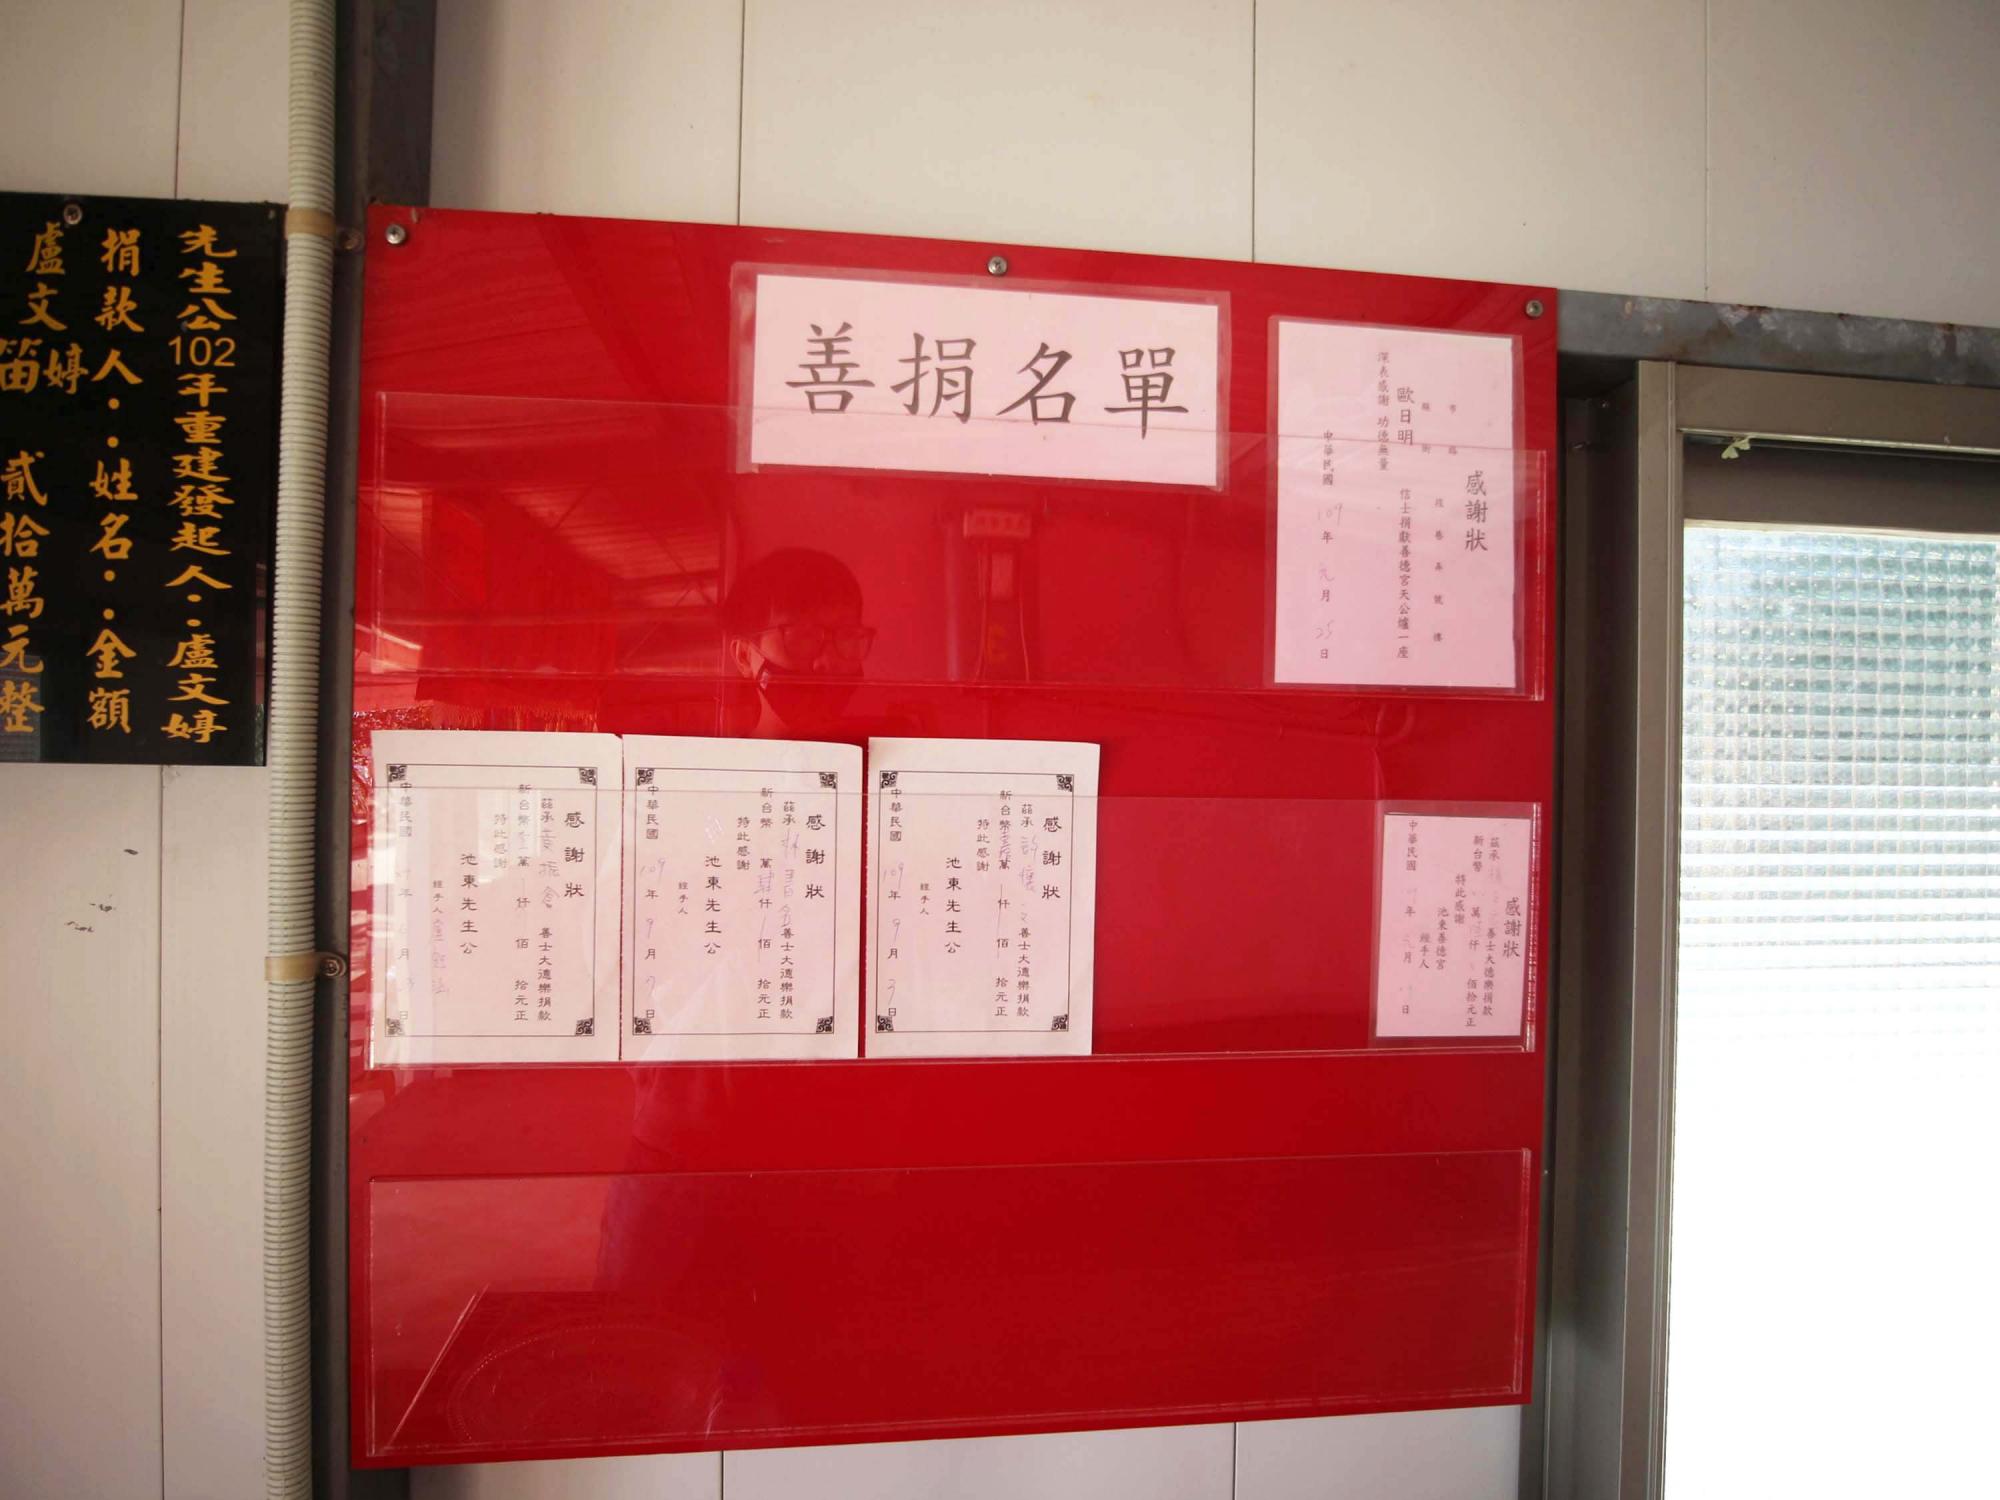 善捐名單
先生公102年重建發起人：盧文婷
捐款人：姓名：金額
盧文婷 貳拾萬元整
笛
感謝狀
市 路 段 巷 弄 號 樓
縣 街
歐日明 信士捐獻善德宮天公爐一座
深表感謝 功德無量
中華民國 109 年 元 月 25 日
感謝狀
茲承 振 善士大德樂捐款
新台幣 萬 仟 佰 拾元正
特此感謝
池東先生公
經手人
中華民國 年 月 日
感謝狀
茲承林 善士大德樂捐款
新台幣 萬肆仟 佰 拾元正
特此感謝
池東先生公
經手人
中華民國 109 年 9 月 日
感謝狀
茲承 文善士大德樂捐款
新台幣 萬 仟 佰 拾元正
特此感謝
池東先生公
經手人
中華民國 109 年 9 月 3 日
感謝狀
茲承 善士大德樂捐款
新台幣 萬 仟 佰拾元正
特此感謝
池東善德宮
經手人
中華民國 年 元月 日